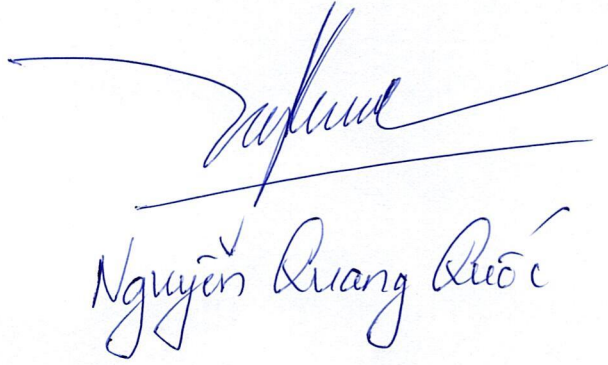 Nguyễn Quang Quốc